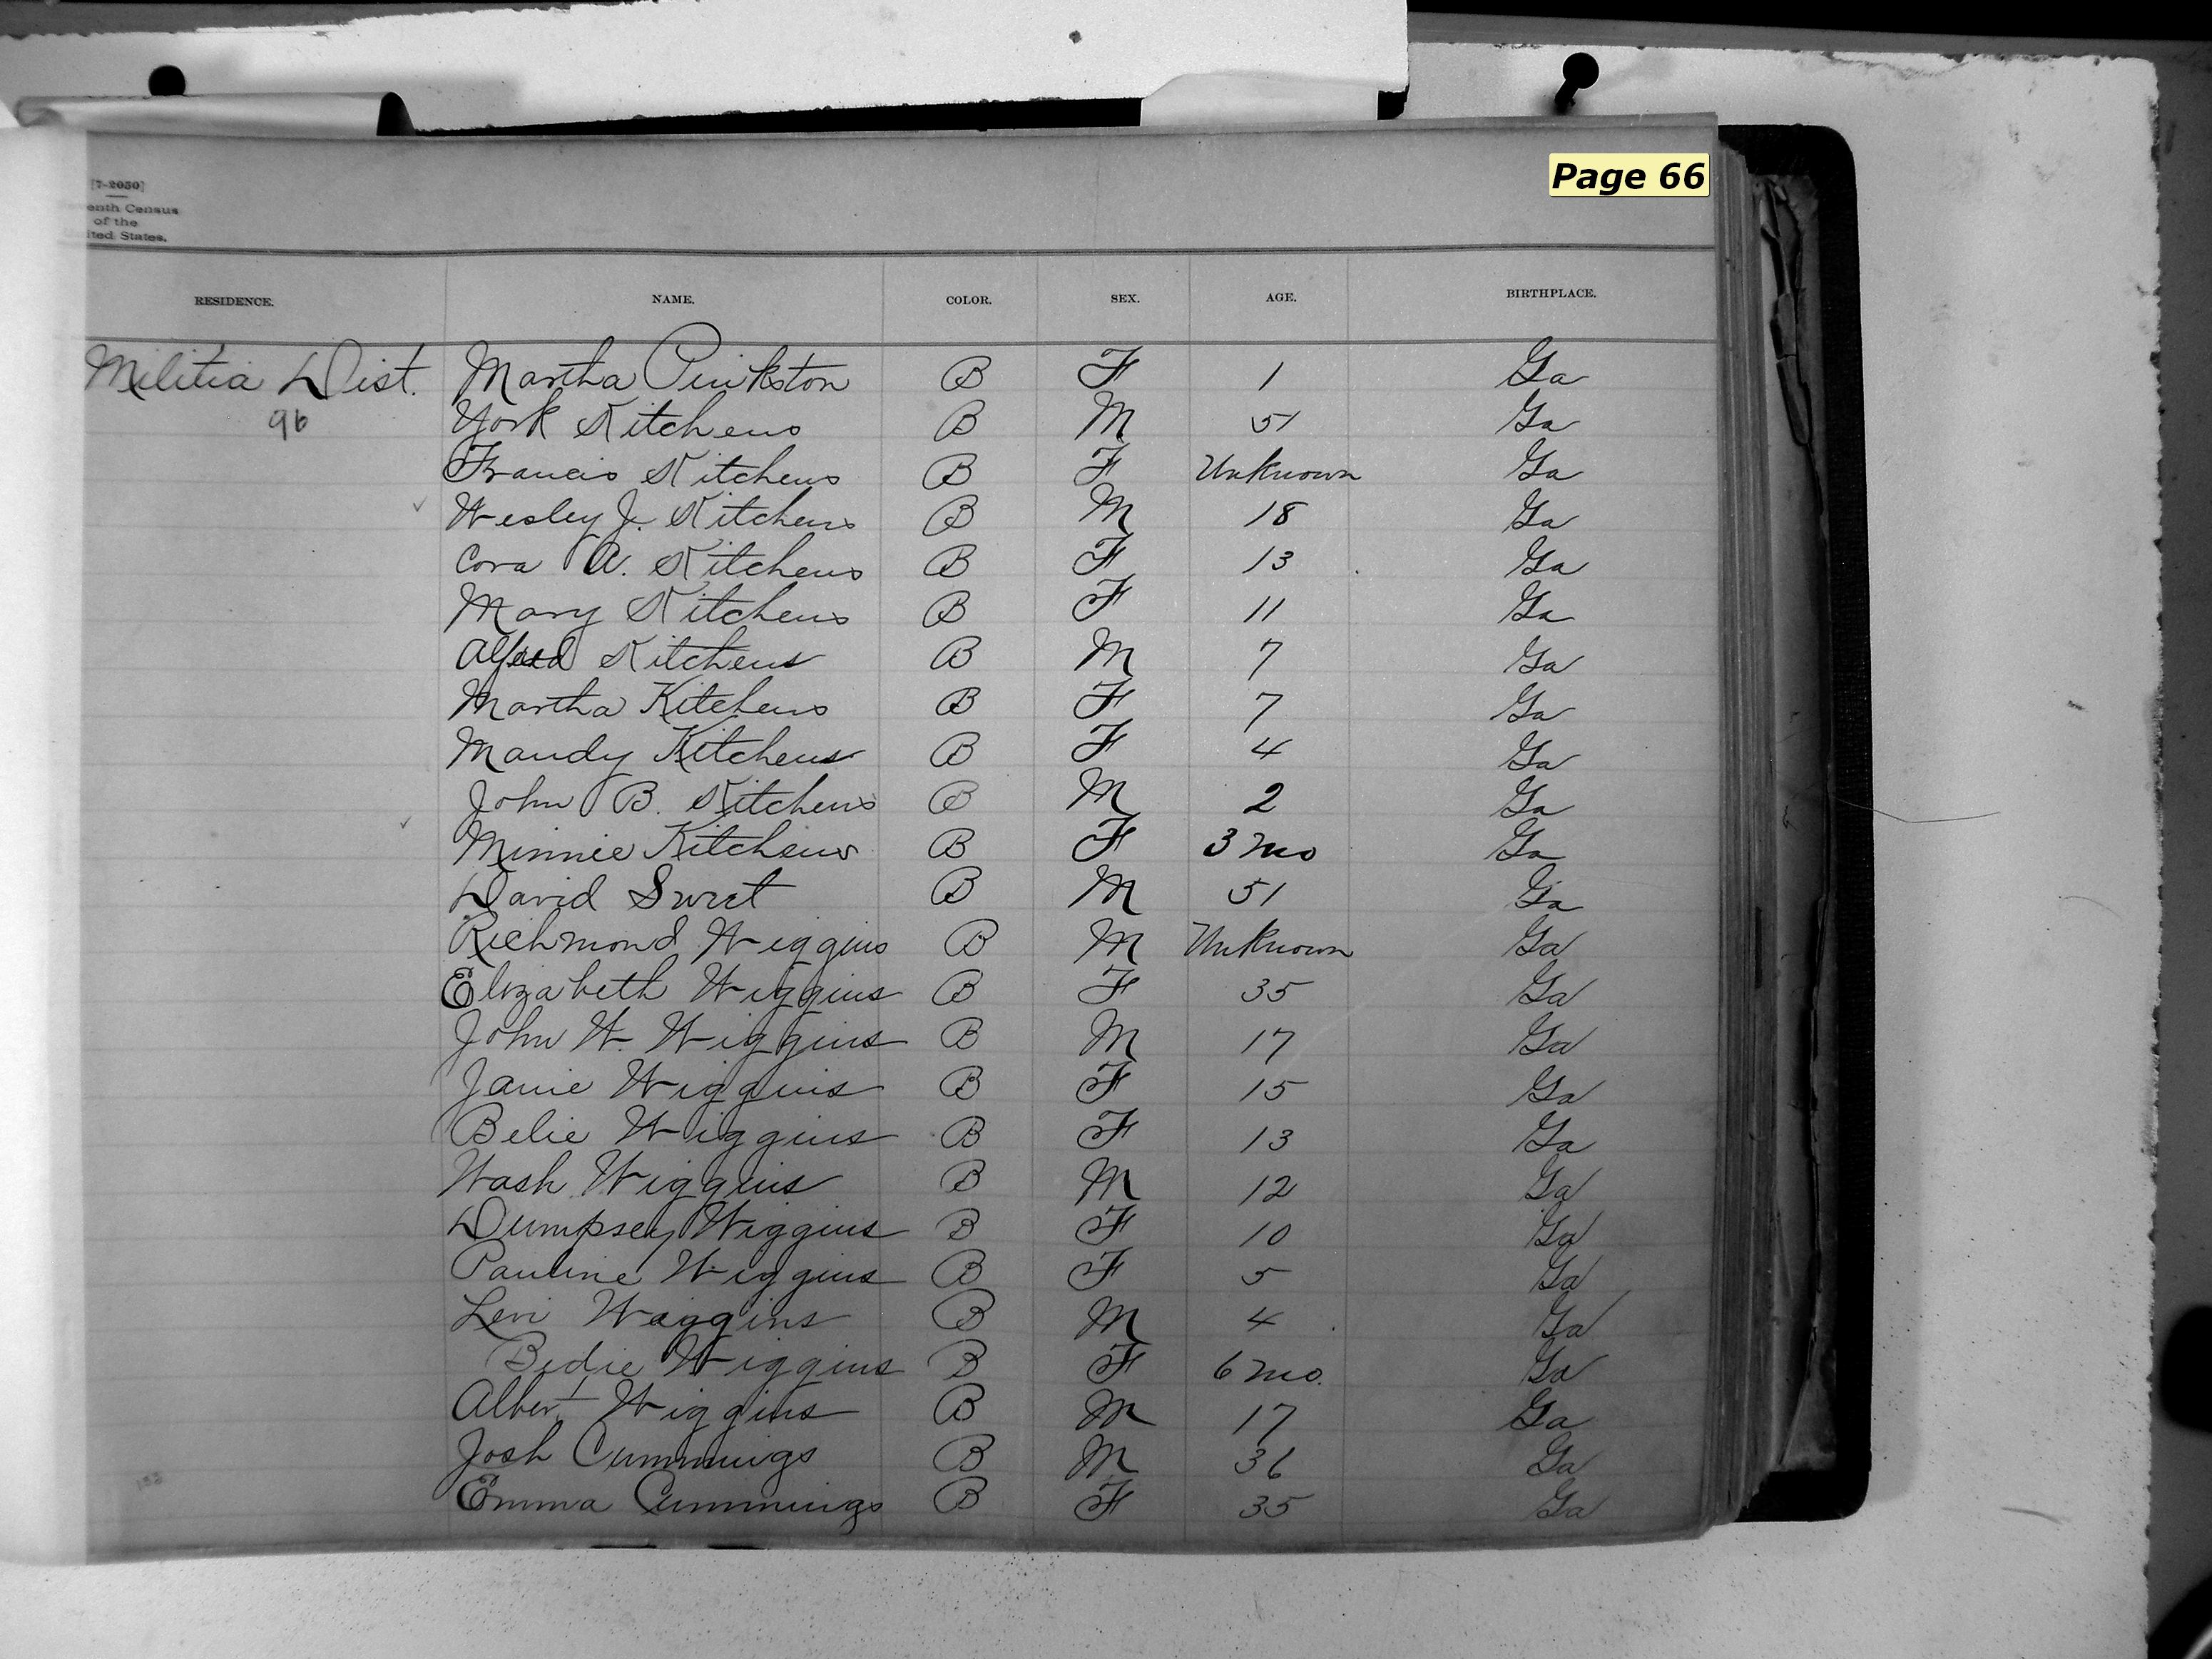 [7-2050]
enth Census
of the
ited States.
Page 66
RESIDENCE. NAME. COLOR. SEX. AGE. BIRTHPLACE.
Militia Dist. Martha Pinkston B F 1 Ga
96 York Kitchens B M 51 Ga
Francis Kitchens B F Unknown Ga
Wesley J. Kitchens B M 18 Ga
Cora A. Kitchens B F 13 Ga
Mary Kitchens B F 11 Ga
Alfred Kitchens B M 7 Ga
Martha Kitchens B F 7 Ga
Mandy Kitchens B F 4 Ga
John B. Kitchens B M 2 Ga
Minnie Kitchens B F 3 mo Ga
David Swret B M 51 Ga
Richmond Wiggins B M Unknown Ga
Elizabeth Wiggins B F 35 Ga
John W. Wiggins B M 17 Ga
Janie Wiggins B F 15 Ga
Belie Wiggins B F 13 Ga
Wash Wiggins B M 12 Ga
Dumpsey Wiggins B F 10 Ga
Pauline Wiggins B F 5 Ga
Levi Wiggins B M 4 Ga
Bedie Wiggins B F 6 mo. Ga
Albert Wiggins B M 17 Ga
Josh Cummings B M 36 Ga
Emma Cummings B F 35 Ga